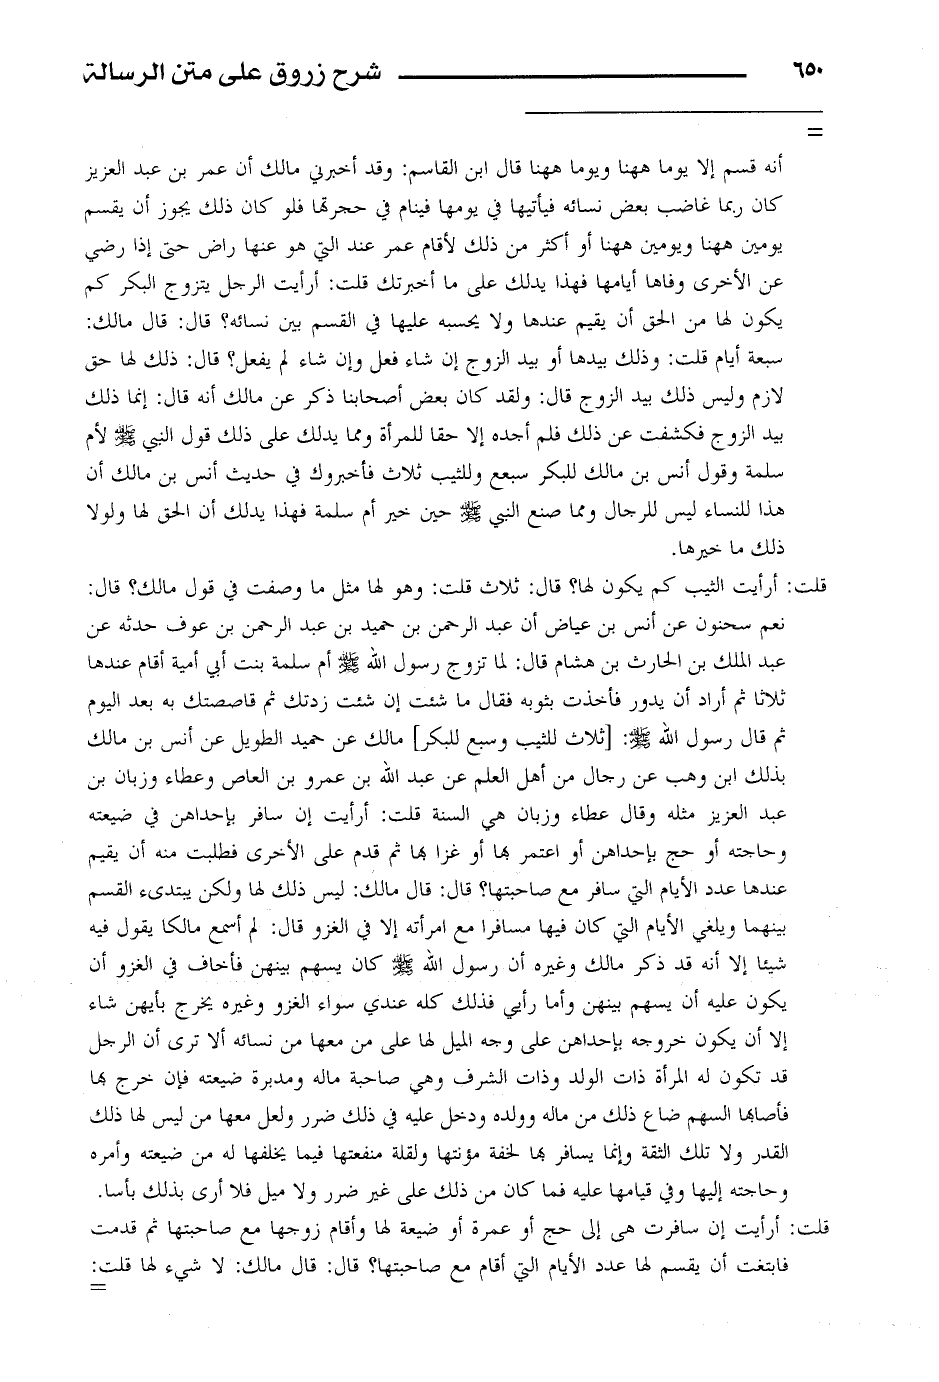 ٦٥٠ شرح زروق على متن الرسالة
=
أنه قسم إلا يوما ههنا ويوما ههنا قال ابن القاسم: وقد أخبرني مالك أن عمر بن عبد العزيز
كان ربما غاضب بعض نسائه فيأتيها في يومها فينام في حجرتها فلو كان ذلك يجوز أن يقسم
يومين ههنا ويومين ههنا أو أكثر من ذلك لأقام عمر عند التي هو عنها راض حتى إذا رضي
عن الأخرى وفاها أيامها فهذا يدلك على ما أخبرتك قلت: أرأيت الرجل يتزوج البكر كم
يكون لها من الحق أن يقيم عندها ولا يحسبه عليها في القسم بين نسائه؟ قال: قال مالك:
سبعة أيام قلت: وذلك بيدها أو بيد الزوج إن شاء فعل وإن شاء لم يفعل؟ قال: ذلك لها حق
لازم وليس ذلك بيد الزوج قال: ولقد كان بعض أصحابنا ذكر عن مالك أنه قال: إنما ذلك
بيد الزوج فكشفت عن ذلك فلم أجده إلا حقا للمرأة ومما يدلك على ذلك قول النبي ﷺ لأم
سلمة وقول أنس بن مالك للبكر سبع وللثيب ثلاث فأخبروك في حديث أنس بن مالك أن
هذا للنساء ليس للرجال ومما صنع النبي ﷺ حين خير أم سلمة فهذا يدلك أن الحق لها ولولا
ذلك ما خيرها.
قلت: أرأيت الثيب كم يكون لها؟ قال: ثلاث قلت: وهو لها مثل ما وصفت في قول مالك؟ قال:
نعم سحنون عن أنس بن عياض أن عبد الرحمن بن حميد بن عبد الرحمن بن عوف حدثه عن
عبد الملك بن الحارث بن هشام قال: لما تزوج رسول الله ﷺ أم سلمة بنت أبي أمية أقام عندها
ثلاثا ثم أراد أن يدور فأخذت بثوبه فقال ما شئت إن شئت زدتك ثم قاصصتك به بعد اليوم
ثم قال رسول الله ﷺ: [ثلاث للثيب وسبع للبكر] مالك عن حميد الطويل عن أنس بن مالك
بذلك ابن وهب عن رجال من أهل العلم عن عبد الله بن عمرو بن العاص وعطاء وزبان بن
عبد العزيز مثله وقال عطاء وزبان هي السنة قلت: أرأيت إن سافر بإحداهن في ضيعته
وحاجته أو حج بإحداهن أو اعتمر بها أو غزا بها ثم قدم على الأخرى فطلبت منه أن يقيم
عندها عدد الأيام التي سافر مع صاحبتها؟ قال: قال مالك: ليس ذلك لها ولكن يبتدىء القسم
بينهما ويلغي الأيام التي كان فيها مسافرا مع امرأته إلا في الغزو قال: لم أسمع مالكا يقول فيه
شيئا إلا أنه قد ذكر مالك وغيره أن رسول الله ﷺ كان يسهم بينهن فأخاف في الغزو أن
يكون عليه أن يسهم بينهن وأما رأيي فذلك كله عندي سواء الغزو وغيره يخرج بأيهن شاء
إلا أن يكون خروجه بإحداهن على وجه الميل لها على من معها من نسائه ألا ترى أن الرجل
قد تكون له المرأة ذات الولد وذات الشرف وهي صاحبة ماله ومدبرة ضيعته فإن خرج بها
فأصابها السهم ضاع ذلك من ماله وولده ودخل عليه في ذلك ضرر ولعل معها من ليس لها ذلك
القدر ولا تلك الثقة وإنما يسافر بها لخفة مؤنتها ولقلة منفعتها فيما يخلفها له من ضيعته وأمره
وحاجته إليها وفي قيامها عليه فما كان من ذلك على غير ضرر ولا ميل فلا أرى بذلك بأسا.
قلت: أرأيت إن سافرت هي إلى حج أو عمرة أو ضيعة لها وأقام زوجها مع صاحبتها ثم قدمت
فابتغت أن يقسم لها عدد الأيام التي أقام مع صاحبتها؟ قال: قال مالك: لا شيء لها قلت:
=